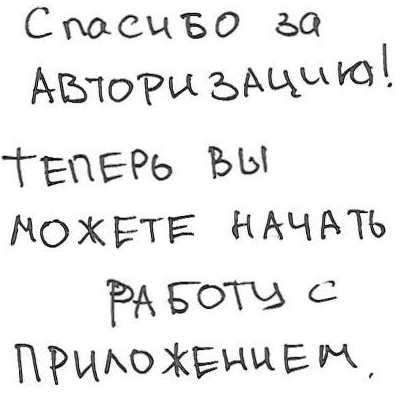 Спасибо за
авторизацию!
Теперь вы
можете начать
работу с
приложением.